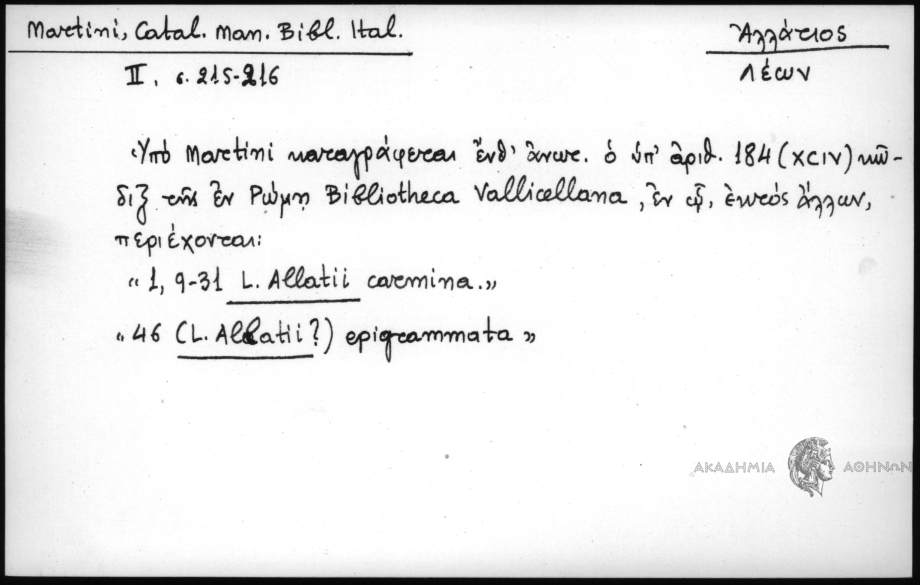 Martini, Catal. Man. Bibl. Ital.
Ἀλλάτιος
II. σ. 215-216
Λέων
Ὑπὸ Martini καταγράφεται ἔνθ' ἄνωτ. ὁ ὑπ' ἀριθ. 184 (XCIV) κῶ-
διξ τῆς ἐν Ρώμῃ Bibliotheca Vallicellana, ἐν ᾧ, ἐκτός ἄλλων,
περιέχονται:
"1, 9-31 L. Allatii carmina."
"46 (L. Allatii?) epigrammata"
ΑΚΑΔΗΜΙΑ ΑΘΗΝΩΝ